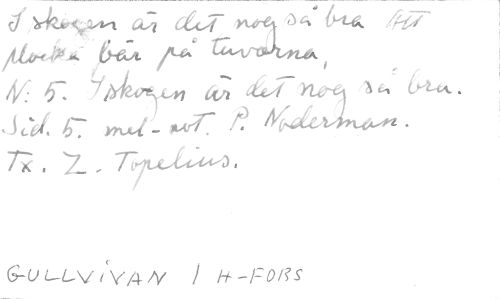 I skogen är det nog så bra Att
plocka bär på tuvorna,
N: 5. I skogen är det nog så bra.
Sid. 5. mel-not. P. Noderman.
Tx. Z. Topelius.
GULLVIVAN / H-FORS